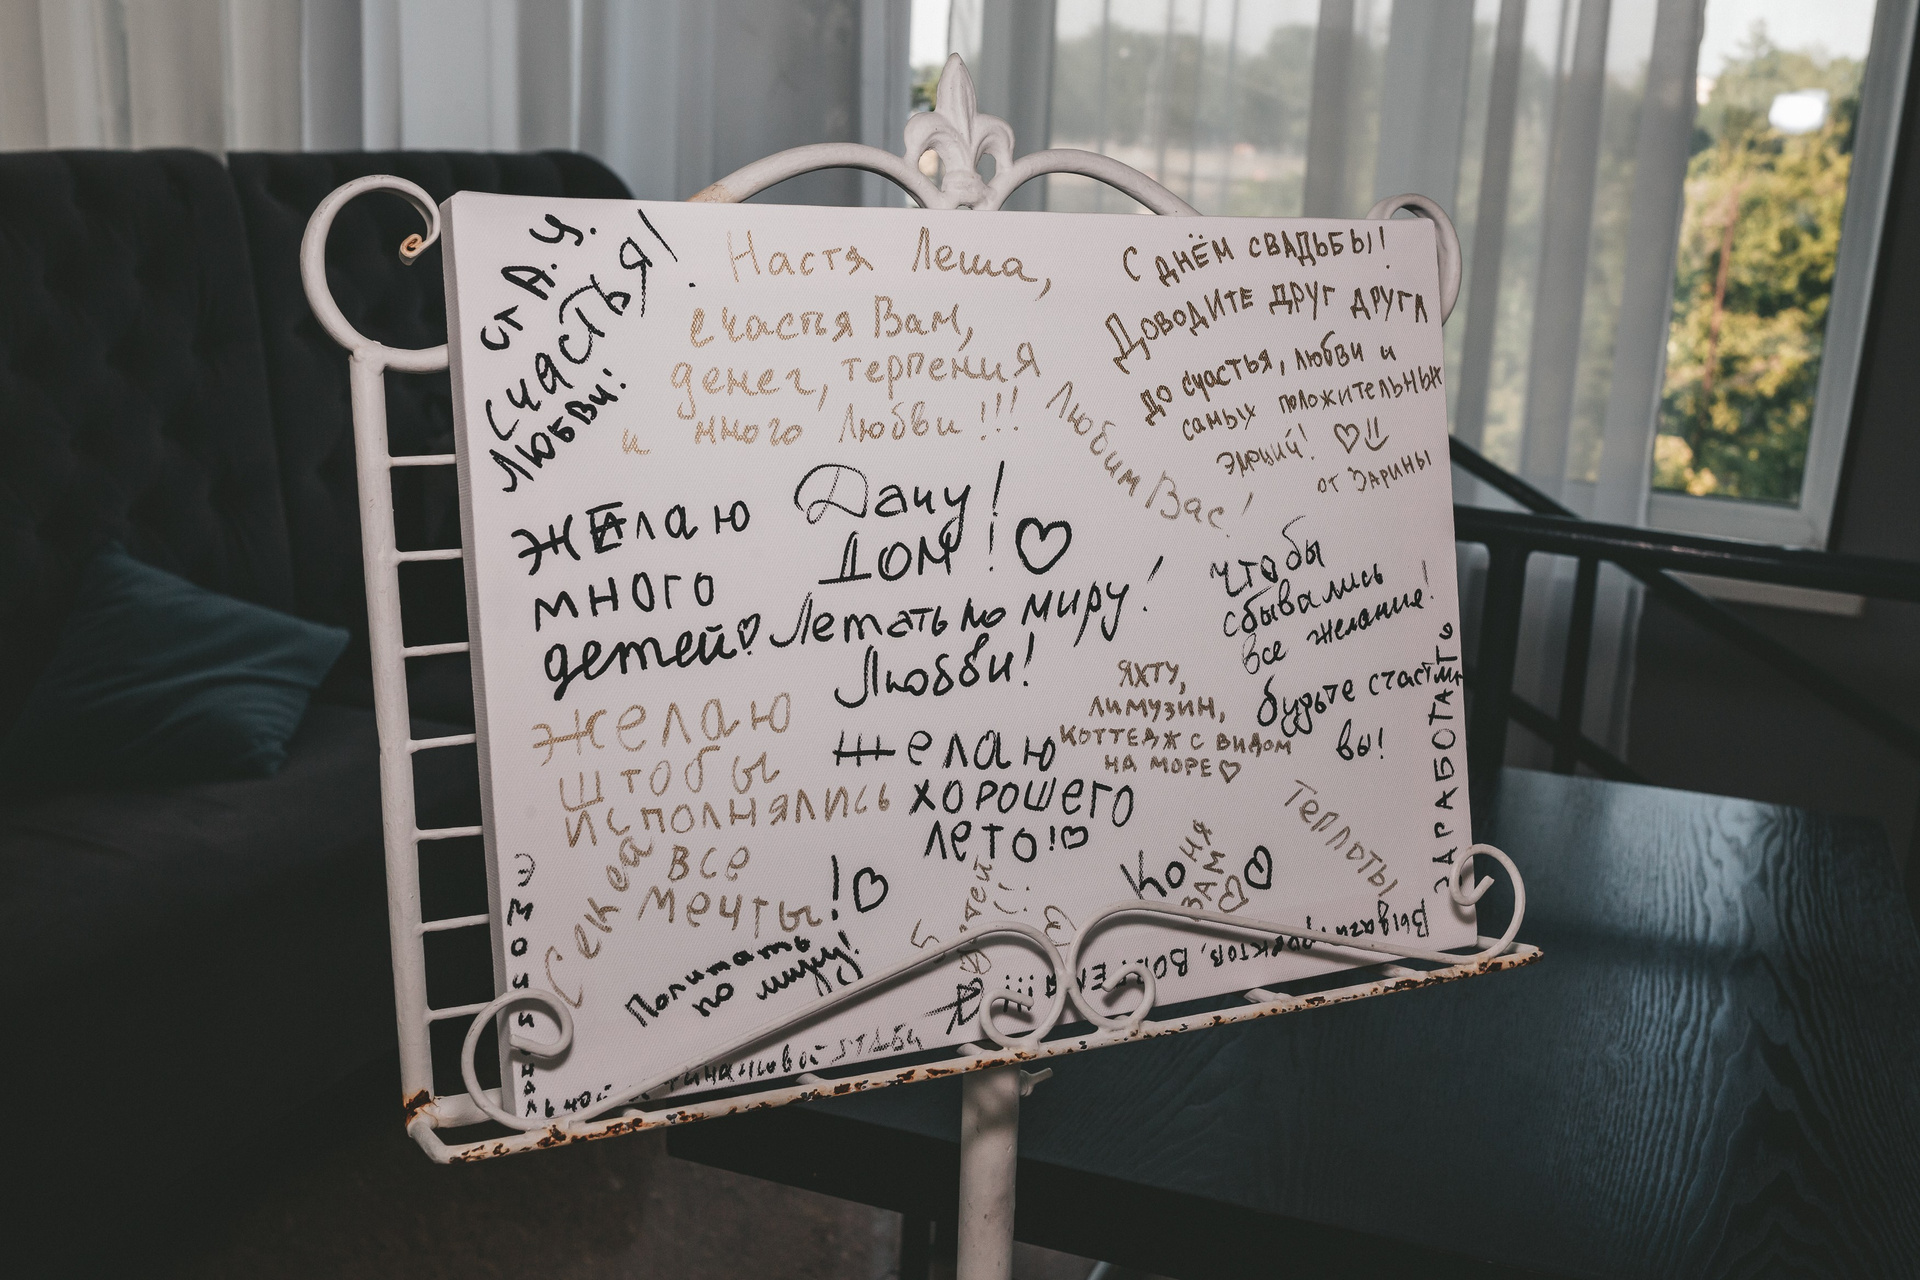 от А.Ч.
Счастья!
Любви!
Настя Леша,
счастья Вам,
денег, терпения
и много Любви!!!
С ДНЁМ СВАДЬБЫ!
ДОВОДИТЕ ДРУГ ДРУГА
до счастья, любви и
самых положительных
эмоций!
от ЗАРИНЫ
Любим Вас!
ЖЕлаю
много
детей
Дачу!
ДОМ!
Летать по миру!
Любви!
Чтобы
сбывались
все желания!
будьте счастли
вы!
ЗАРАБОТАТЬ
ЯХТУ,
ЛИМУЗИН,
КОТТЕДЖ С ВИДОМ
НА МОРЕ
Желаю
штобы
исполнялись
все
мечты!
Желаю
хорошего
лето!
Секса
Политать
по миру!
Коня
ВАМ
Теплоты
эмоциональной
финансовой